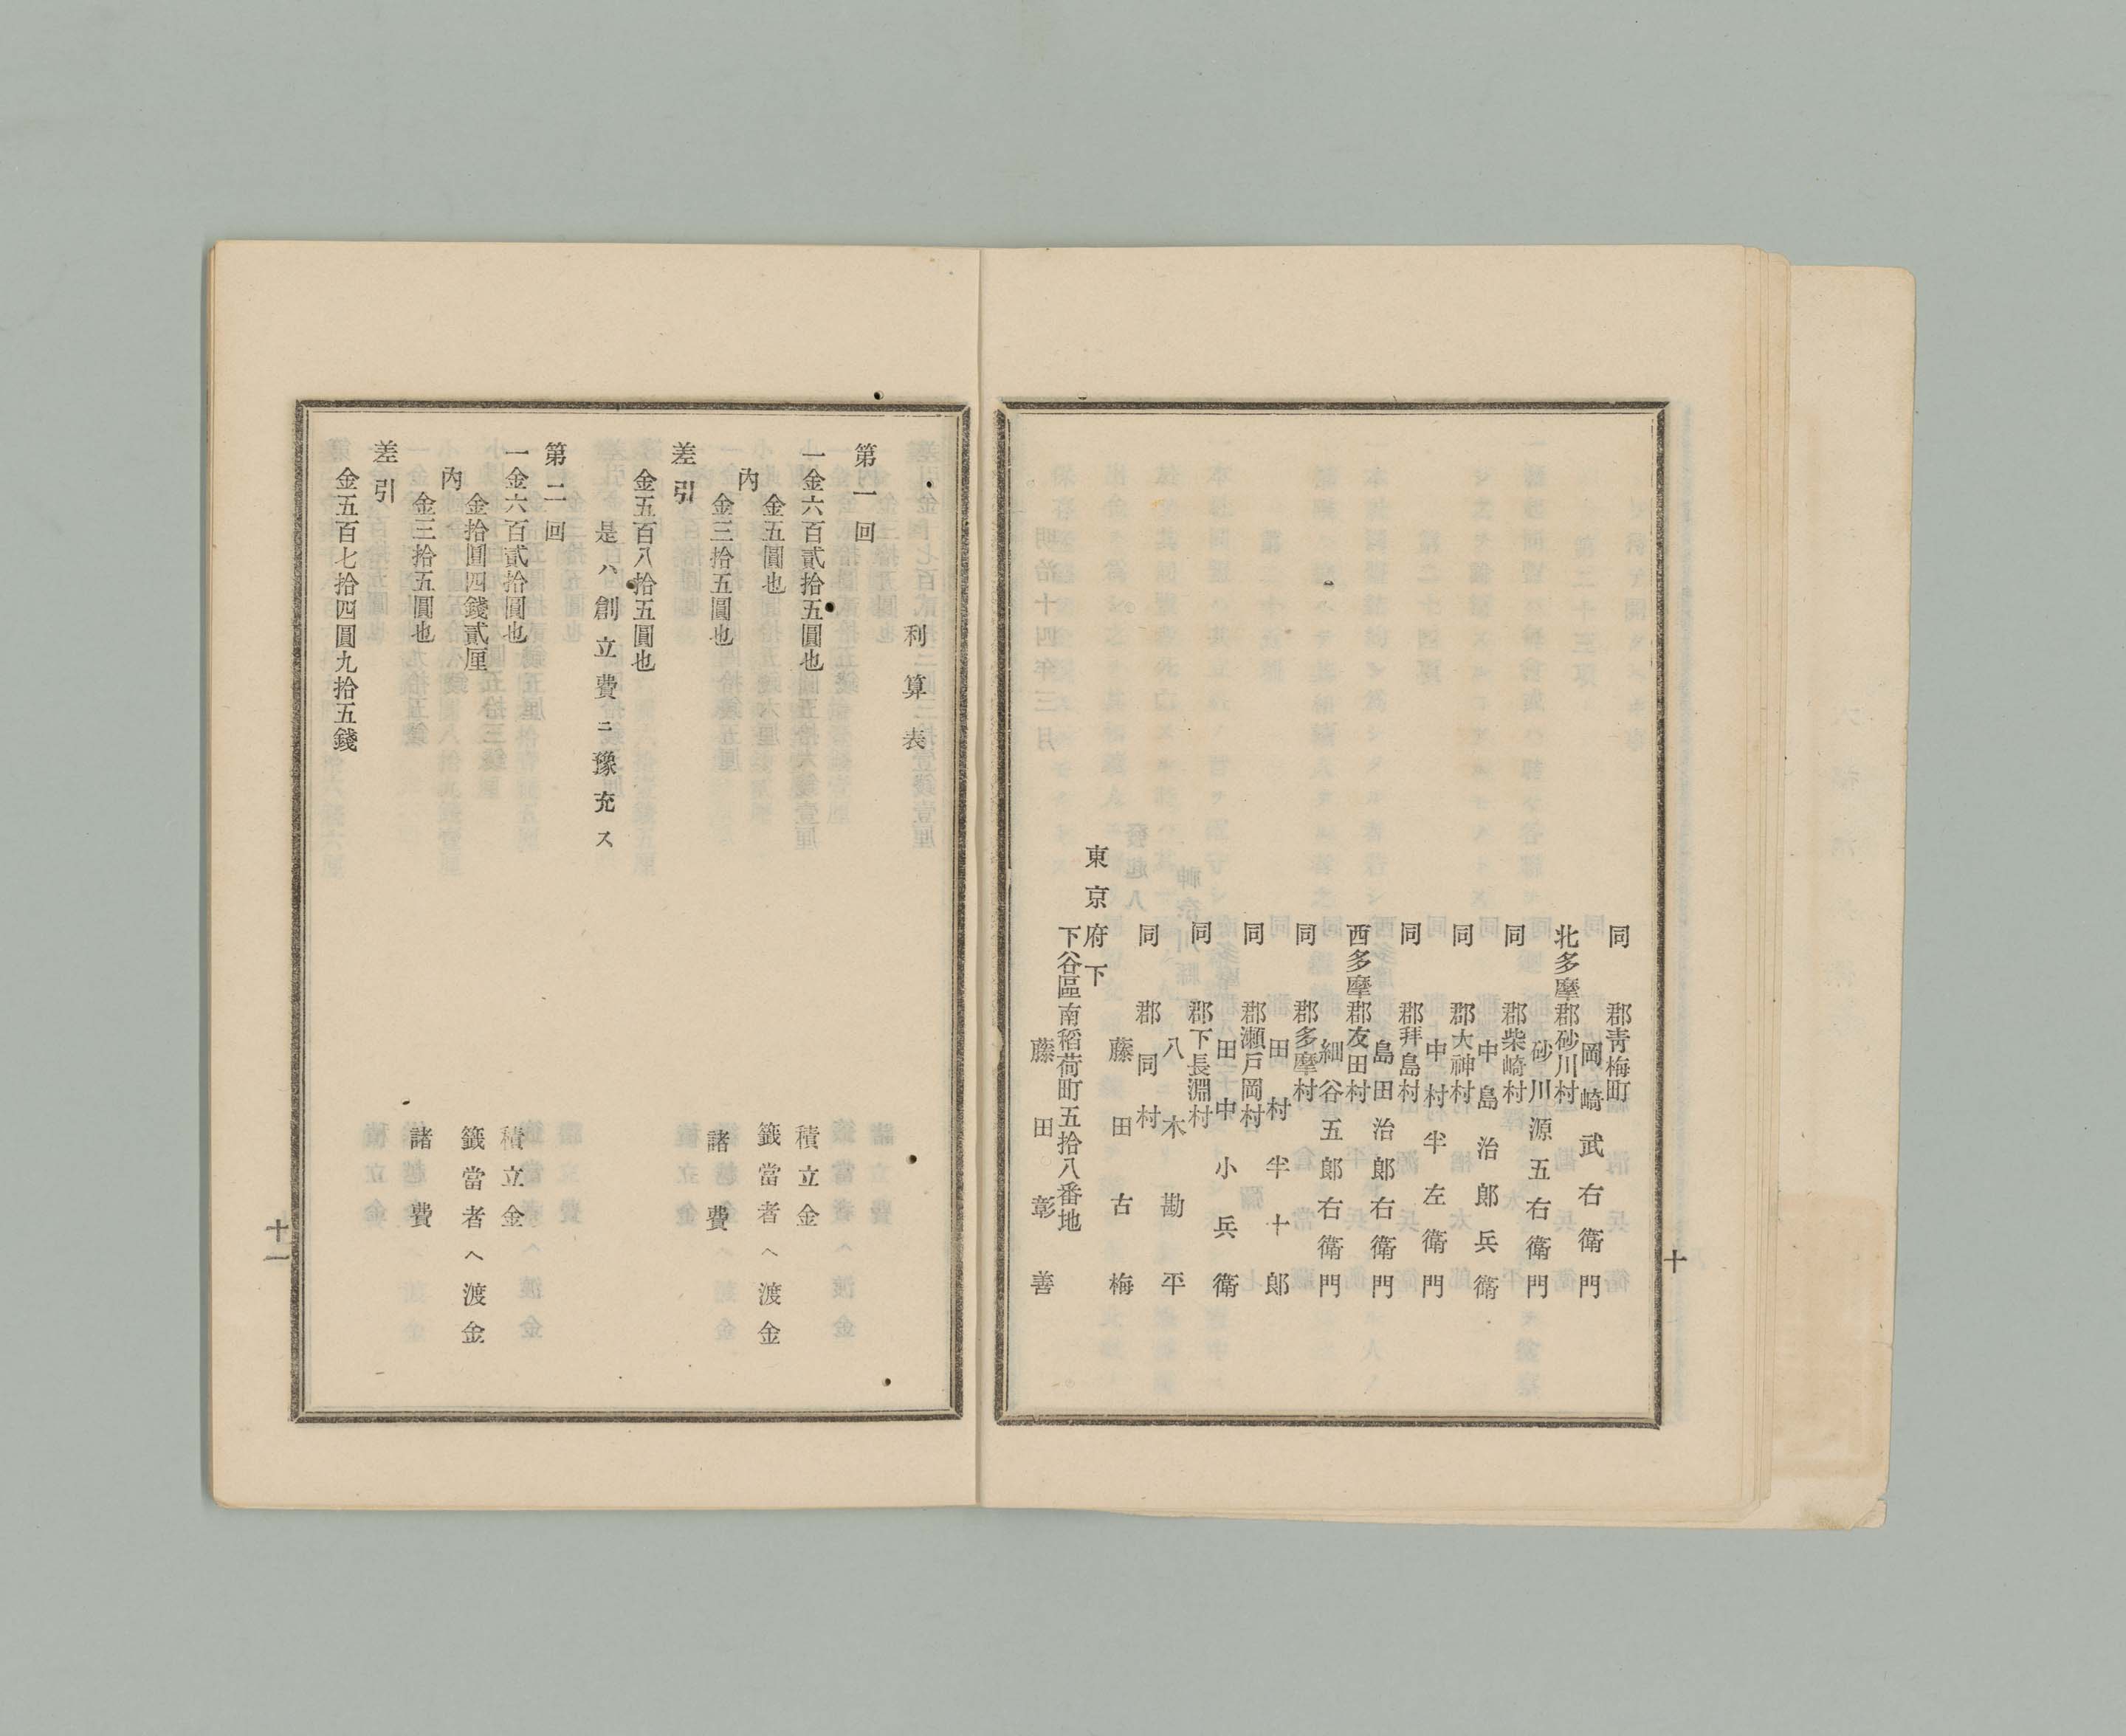 同郡青梅町
岡崎武右衛門
北多摩郡砂川村
砂川源五右衛門
同郡柴崎村
中島治郎兵衛
同郡大神村
中村半左衛門
同郡拜島村
島田治郎右衛門
西多摩郡友田村
細谷五郎右衛門
同郡多摩村
田村半十郎
同郡瀬戸岡村
田中小兵衛
同郡下長淵村
八木勘平
同郡同村
藤田古梅
東京府下
下谷區南稻荷町五拾八番地
藤田彰善
十
利算表
第一回
一金六百貳拾五圓也 積立金
內
金五圓也 籤當者ヘ渡金
金三拾五圓也 諸費
差引
金五百八拾五圓也
是ハ創立費ニ豫充ス
第二回
一金六百貳拾圓也 積立金
內
金拾圓四錢貳厘 籤當者ヘ渡金
金三拾五圓也 諸費
差引
金五百七拾四圓九拾五錢
十一